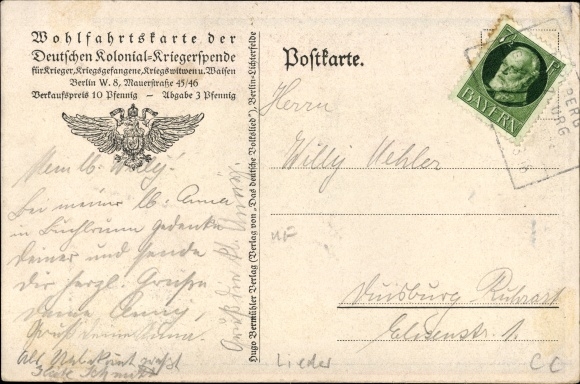 Wohlfahrtskarte der
Deutschen Kolonial=Kriegerspende
für Krieger, Kriegsgefangene, Kriegswitwen u. Waisen
Berlin W. 8, Mauerstraße 45/46
Verkaufspreis 10 Pfennig – Abgabe 3 Pfennig
Mein lb. Willy!
Bei meiner lb. Anna
in Gedenke
Deiner und sende
Dir herzl. Grüße
Deine Anny,
Als Unbekannt grüßt
Hugo Vermühler Verlag (Verlag von „Das deutsche Volkslied"), Berlin-Lichterfelde
Postkarte.
BAYERN
Herrn
Willy Uehler
Duisburg Ruhrort
Elisenstr. 1.
Lieder
CC